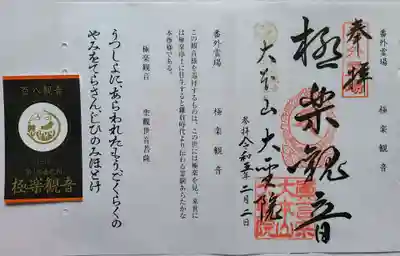 番外霊場　極楽観音
奉拝
極楽観音
大聖院
参拝令和五年二月二日
番外霊場　極楽観音
この観音様を巡拝するものは、この世には極楽を見、来世に
は極楽浄土に往生すると鎌倉時代より伝わる霊験あらたかな
本尊様である。
極楽観音　聖観世音菩薩
うつしよにあらわれたもうごくらくの
やみをてらさんじひのみほとけ
百八観音
極楽観音